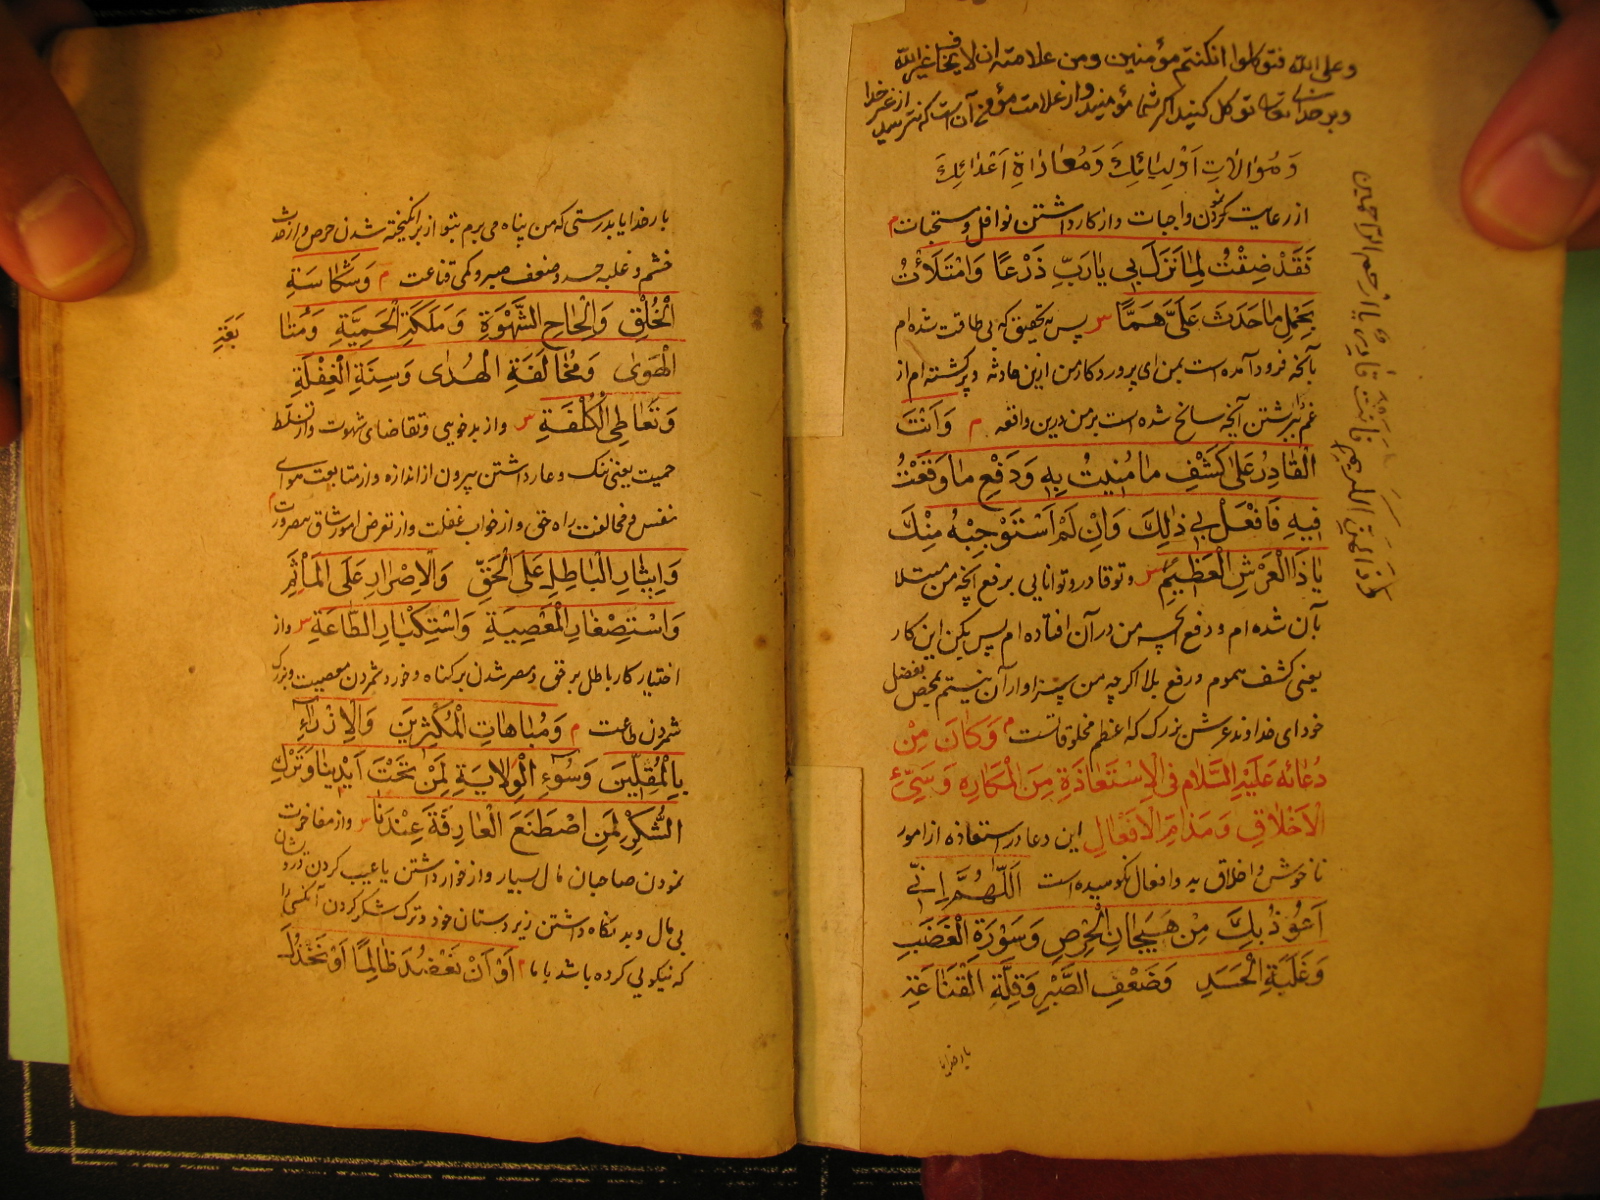 وعلى الله فتوكلوا ان كنتم مؤمنين ومن علامته ان لا يخاف غير الله
وبر خدای تعالی توکل کنید اکر شما مؤمنید واز علامت مؤمن آنست که نترسد از غیر خدا
وَمُوَالَاتِ اَوْلِيَائِكَ وَمُعَادَاةِ اَعْدَائِكَ
از رعایت کردن واجبات واز کار داشتن نوافل و مستحبات م
فَقَدْ ضِقْتُ لِمَا نَزَلَ بِي يَارَبِّ ذَرْعًا وَامْتَلَأْتُ
بِحَمْلِ مَا حَدَثَ عَلَيَّ هَمًّا س پس به تحقیق که بی طاقت شده ام
بآنچه فرود آمده است بمن ای پروردکار من ازین حادثه و پر کشته ام از
غم برداشتن آنچه سانح شده است بر من درین واقعه م وَاَنْتَ
الْقَادِرُ عَلَى كَشْفِ مَا مُنِيتُ بِهِ وَدَفْعِ مَا وَقَعْتُ
فِيهِ فَافْعَلْ بِي ذٰلِكَ وَاِنْ لَمْ اَسْتَوْجِبْهُ مِنْكَ
يَاذَا الْعَرْشِ الْعَظِيمِ س وتو قادر وتوانایی بر رفع آنچه من مبتلا
بآن شده ام و دفع آنچه من در آن افتاده ام پس بکن این کار
یعنی کشف هموم و رفع بلا اکر چه من سزاوار آن نیستم بمحض بفضل
خود ای خداوند عرش بزرک که اعظم مخلوقاتست م وَكَانَ مِنْ
دُعَائِه عَلَيْهِ السَّلَام فِي الْاِسْتَعَاذَةِ مِنَ الْمَكَارِهِ وَسَيِّئِ
الْاَخْلَاقِ وَمَذَامِّ الْاَفْعَالِ این دعا در استعاذه از امور
ناخوش و اخلاق بد و افعال نکوهیده است اَللّٰهُمَّ اِنِّي
اَعُوذُ بِكَ مِنْ هَيَجَانِ الْحِرْصِ وَسَوْرَةِ الْغَضَبِ
وَغَلَبَةِ الْحَسَدِ وَضَعْفِ الصَّبْرِ وَقِلَّةِ الْقَنَاعَةِ
بار خدایا
يا ارحم الراحمين
بار خدایا بدرستی که من پناه می برم بتو از برانکیخته شدن حرص و از حدت
خشم و غلبه حسد و ضعف صبر و کمی قناعت م وَشَكَاسَةِ
الْخُلْقِ وَاِلْحَاحِ الشَّهْوَةِ وَمَلَكَةِ الْحَمِيَّةِ وَمُتَا بَعَةِ
الْهَوٰى وَمُخَالَفَةِ الْهُدٰى وَسِنَةِ الْغَفْلَةِ
وَتَعَاطِي الْكُلْفَةِ س واز بدخویی و تقاضای شهوت واز تسلط
حمیت یعنی ننک و عار داشتن بیرون از اندازه و از متابعت هوای
نفس و مخالفت راه حق و از خواب غفلت و از تعرض امور شاق بی ضرورت م
وَاِيثَارِ الْبَاطِلِ عَلَى الْحَقِّ وَالْاِصْرَارِ عَلَى الْمَأْثَمِ
وَاسْتِصْغَارِ الْمَعْصِيَةِ وَاسْتِكْبَارِ الطَّاعَةِ س واز
اختیار کار باطل بر حق و مصر شدن بر کناه و خورد شمردن معصیت و بزرک
شمردن طاعت م وَمُبَاهَاتِ الْمُكْثِرِينَ وَالْاِزْرَاءِ
بِالْمُقِلِّينَ وَسُوءِ الْوِلَايَةِ لِمَنْ تَحْتَ اَيْدِينَا وَتَرْكِ
الشُّكْرِ لِمَنِ اصْطَنَعَ الْعَارِفَةَ عِنْدَنَا س واز مفاخرت
نمودن صاحبان مال بسیار و از خوار داشتن یا عیب کردن درویشان
بی مال و بد نکاه داشتن زیردستان خود و ترک شکر کردن آنکس را
که نیکویی کرده باشد با ما م اَوْ اَنْ نَعْضُدَ ظَالِمًا اَوْ نَخْذُلَ